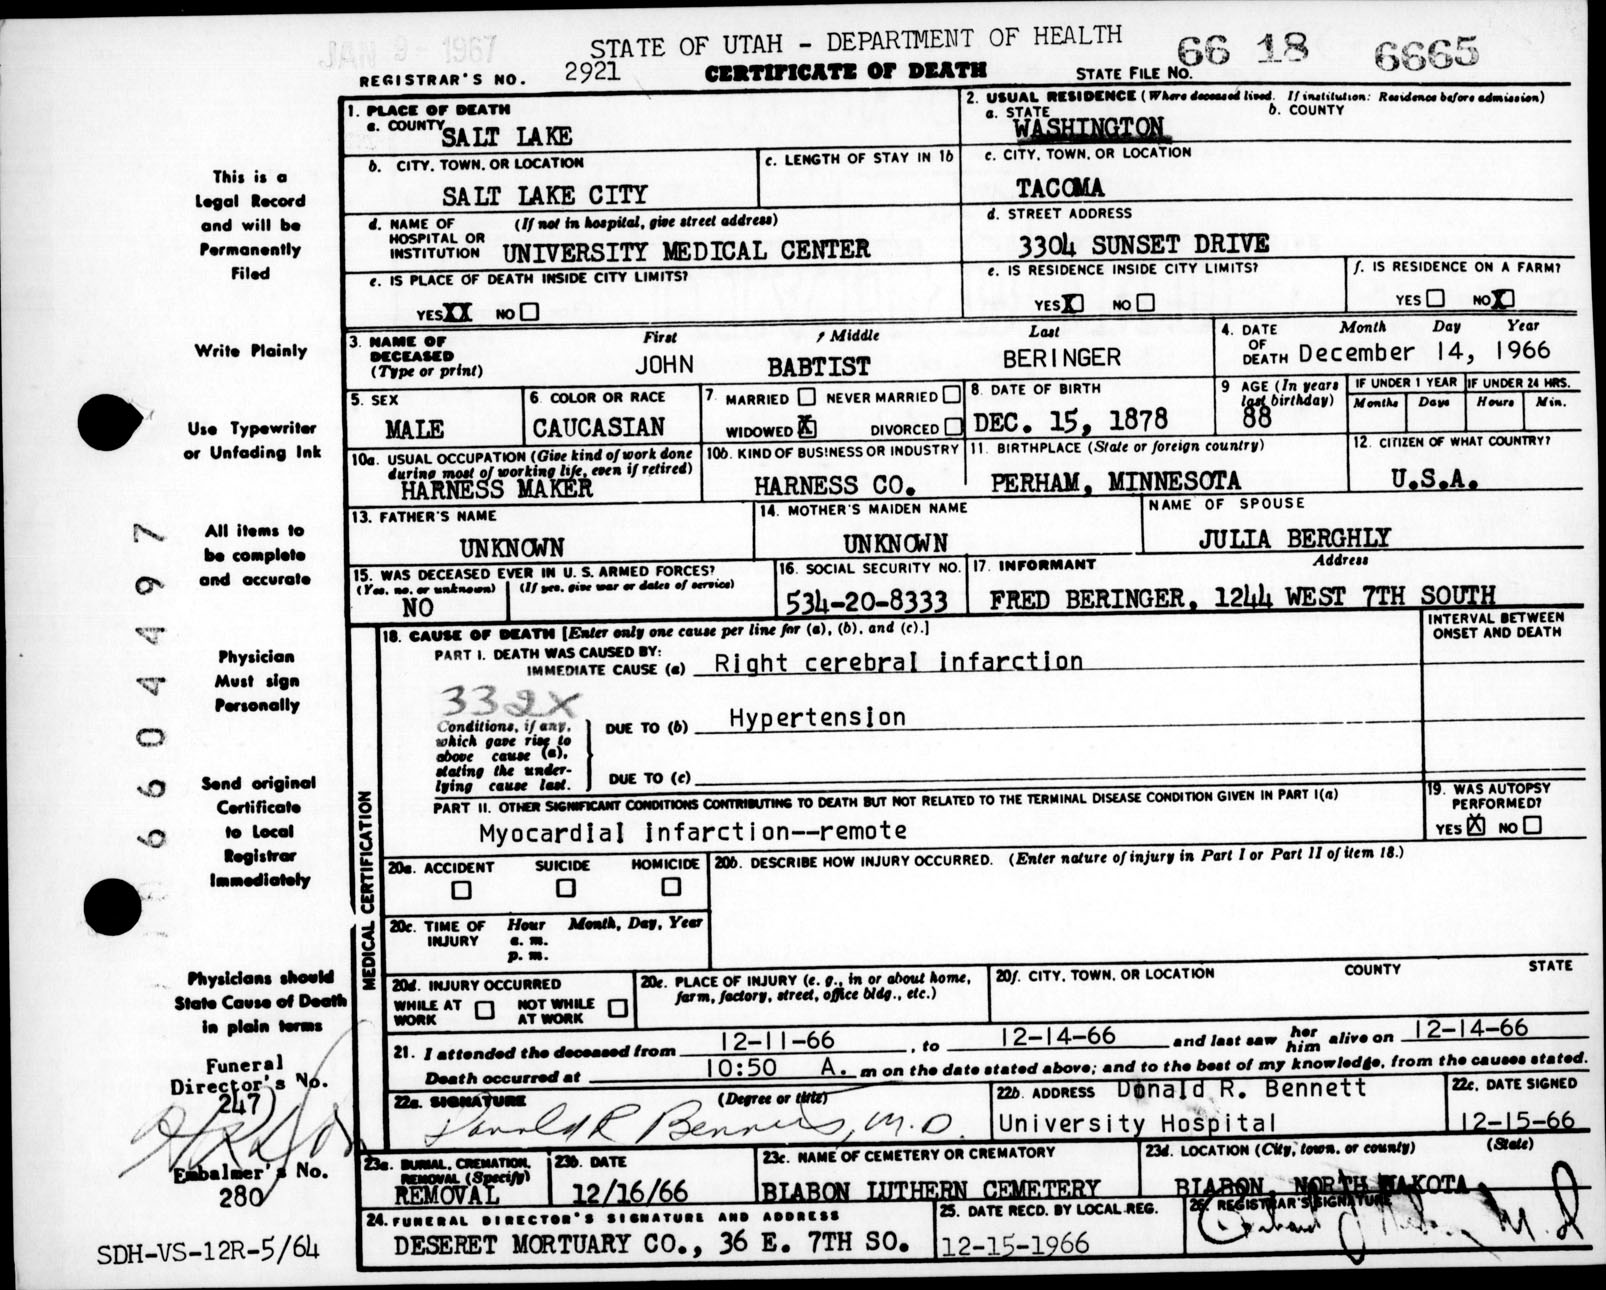 JAN 9 - 1967
STATE OF UTAH - DEPARTMENT OF HEALTH
66 18 6665
REGISTRAR'S NO. 2921 CERTIFICATE OF DEATH STATE FILE NO.
1. PLACE OF DEATH
a. COUNTY SALT LAKE
2. USUAL RESIDENCE (Where deceased lived. If institution: Residence before admission)
a. STATE WASHINGTON b. COUNTY
b. CITY, TOWN, OR LOCATION SALT LAKE CITY
c. LENGTH OF STAY IN 1b
c. CITY, TOWN, OR LOCATION
TACOMA
d. NAME OF HOSPITAL OR INSTITUTION (If not in hospital, give street address)
UNIVERSITY MEDICAL CENTER
d. STREET ADDRESS
3304 SUNSET DRIVE
e. IS PLACE OF DEATH INSIDE CITY LIMITS?
YES XX NO
e. IS RESIDENCE INSIDE CITY LIMITS?
YES X NO
f. IS RESIDENCE ON A FARM?
YES NO X
3. NAME OF DECEASED (Type or print)
First Middle Last
JOHN BABTIST BERINGER
4. DATE OF DEATH Month Day Year
December 14, 1966
5. SEX
MALE
6. COLOR OR RACE
CAUCASIAN
7. MARRIED NEVER MARRIED
WIDOWED X DIVORCED
8. DATE OF BIRTH
DEC. 15, 1878
9 AGE (In years last birthday)
88
IF UNDER 1 YEAR
Months Days
IF UNDER 24 HRS.
Hours Min.
10a. USUAL OCCUPATION (Give kind of work done during most of working life, even if retired)
HARNESS MAKER
10b. KIND OF BUSINESS OR INDUSTRY
HARNESS CO.
11. BIRTHPLACE (State or foreign country)
PERHAM, MINNESOTA
12. CITIZEN OF WHAT COUNTRY?
U.S.A.
13. FATHER'S NAME
UNKNOWN
14. MOTHER'S MAIDEN NAME
UNKNOWN
NAME OF SPOUSE
JULIA BERGHLY
15. WAS DECEASED EVER IN U. S. ARMED FORCES?
(Yes, no, or unknown) (If yes, give war or dates of service)
NO
16. SOCIAL SECURITY NO.
534-20-8333
17. INFORMANT Address
FRED BERINGER, 1244 WEST 7TH SOUTH
MEDICAL CERTIFICATION
18. CAUSE OF DEATH [Enter only one cause per line for (a), (b), and (c).]
INTERVAL BETWEEN ONSET AND DEATH
PART I. DEATH WAS CAUSED BY:
IMMEDIATE CAUSE (a) Right cerebral infarction
332X
Conditions, if any, which gave rise to above cause (a), stating the underlying cause last.
DUE TO (b) Hypertension
DUE TO (c)
PART II. OTHER SIGNIFICANT CONDITIONS CONTRIBUTING TO DEATH BUT NOT RELATED TO THE TERMINAL DISEASE CONDITION GIVEN IN PART I(a)
Myocardial infarction--remote
19. WAS AUTOPSY PERFORMED?
YES X NO
20a. ACCIDENT SUICIDE HOMICIDE
20b. DESCRIBE HOW INJURY OCCURRED. (Enter nature of injury in Part I or Part II of item 18.)
20c. TIME OF INJURY Hour Month, Day, Year
a. m.
p. m.
20d. INJURY OCCURRED
WHILE AT WORK NOT WHILE AT WORK
20e. PLACE OF INJURY (e. g., in or about home, farm, factory, street, office bldg., etc.)
20f. CITY, TOWN, OR LOCATION COUNTY STATE
21. I attended the deceased from 12-11-66, to 12-14-66 and last saw her him alive on 12-14-66
Death occurred at 10:50 A. m on the date stated above; and to the best of my knowledge, from the causes stated.
22a. SIGNATURE (Degree or title)
Donald R Bennett, M.D.
22b. ADDRESS Donald R. Bennett
University Hospital
22c. DATE SIGNED
12-15-66
23a. BURIAL, CREMATION, REMOVAL (Specify)
REMOVAL
23b. DATE
12/16/66
23c. NAME OF CEMETERY OR CREMATORY
BIABON LUTHERN CEMETERY
23d. LOCATION (City, town, or county) (State)
BIABON, NORTH DAKOTA
24. FUNERAL DIRECTOR'S SIGNATURE AND ADDRESS
DESERET MORTUARY CO., 36 E. 7TH SO.
25. DATE RECD. BY LOCAL REG.
12-15-1966
26. REGISTRAR'S SIGNATURE
M.D
This is a
Legal Record
and will be
Permanently
Filed
Write Plainly
Use Typewriter
or Unfading Ink
All items to
be complete
and accurate
Physician
Must sign
Personally
Send original
Certificate
to Local
Registrar
Immediately
Physicians should
State Cause of Death
in plain terms
Funeral
Director's No.
247
Embalmer's No.
280
SDH-VS-12R-5/64
6604497